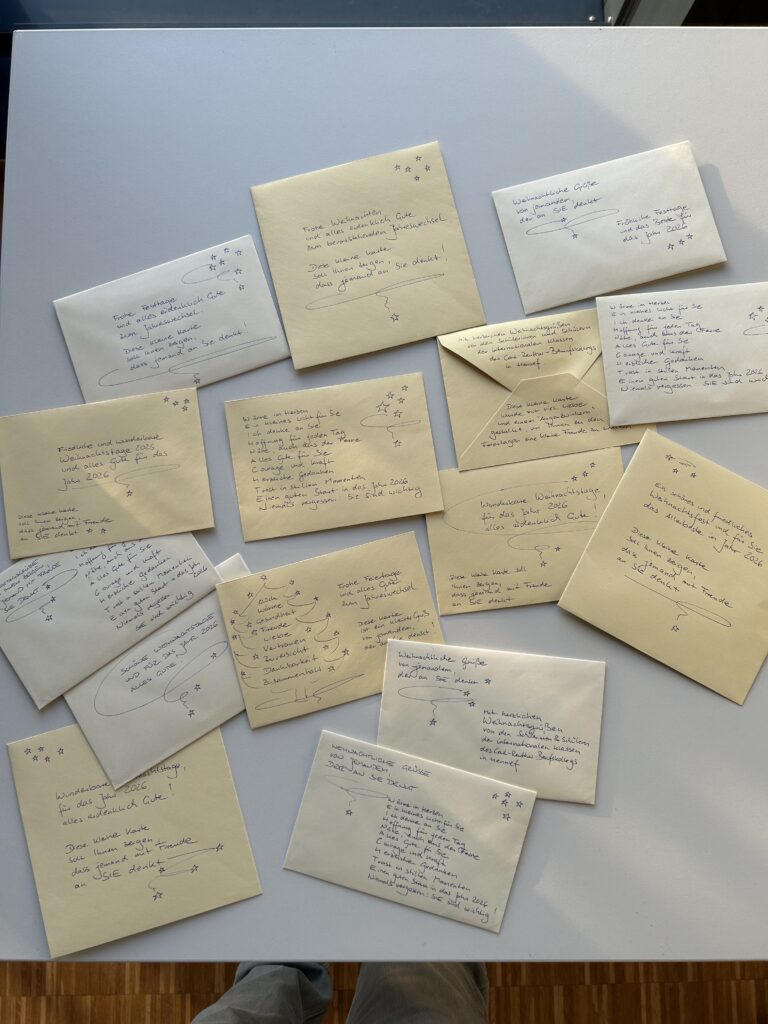 Frohe Weihnachten
und alles erdenklich Gute
zum bevorstehenden Jahreswechsel
Diese kleine Karte
soll Ihnen zeigen,
dass jemand an Sie denkt!
Weihnachtliche Grüße
von jemandem,
der an SIE denkt
Fröhliche Festtage
und das Beste für
das Jahr 2026
Frohe Festtage
und alles erdenklich Gute
zum Jahreswechsel.
Diese kleine Karte
soll Ihnen zeigen,
dass jemand an Sie denkt!
Wärme im Herzen
Ein kleines Licht für Sie
Ich denke an Sie
Hoffnung für jeden Tag
Nähe, auch aus der Ferne
Alles Gute für Sie
Courage und Kraft
Herzlicher Gedanken
Trost in stillen Momenten
Einen guten Start in das Jahr 2026
Niemals vergessen: SIE sind
Mit herzlichen Weihnachtsgrüßen
von den Schülerinnen und Schülern
der internationalen Klassen
des Carl-Reuther-Berufskollegs
in Hennef
Diese kleine Karte
wurde mit viel Liebe
und einem Augenzwinkern
gestaltet, um Ihnen zu den
Feiertagen eine kleine Freude zu
Friedliche und wunderbare
Weihnachtstage 2025
und alles Gute für das
Jahr 2026
Diese kleine Karte
soll Ihnen zeigen,
dass jemand mit Freude
an SIE denkt
Wärme im Herzen
Ein kleines Licht für Sie
Ich denke an Sie
Hoffnung für jeden Tag
Nähe, auch aus der Ferne
Alles Gute für Sie
Courage und Kraft
Herzliche Gedanken
Trost in stillen Momenten
Einen guten Start in das Jahr 2026
Niemals vergessen: Sie sind wichtig
Wunderbare Weihnachtstage,
für das Jahr 2026
alles erdenklich Gute!
Diese kleine Karte soll
Ihnen zeigen,
dass jemand mit Freude
an SIE denkt
Ein schönes und friedliches
Weihnachtsfest und für Sie
das Allerbeste in Jahr 2026
Diese kleine Karte
soll Ihnen zeigen,
dass jemand mit Freude
an SIE denkt
Nähe, auch aus
Alles Gute für Sie
Courage und Kraft
Herzliche Gedanken
Trost in stillen Momenten
Einen guten Start in das Jahr
2026
Niemals vergessen
SIE sind wichtig
SCHÖNE WEIHNACHTSTAGE
UND FÜR DAS JAHR 2026
ALLES GUTE!
Glück
Wärme
Gesundheit
Freude
Liebe
Vertrauen
Zuversicht
Dankbarkeit
Zusammenhalt
Frohe Feiertage
und alles Gute
zum Jahreswechsel
Diese Karte
ist ein kleiner Gruß
von jemandem,
der an SIE denkt!
Weihnachtliche Grüße
von jemandem,
der an SIE denkt
Mit herzlichen
Weihnachtsgrüßen
von den Schülerinnen & Schülern
der internationalen Klassen
des Carl-Reuther-Berufskollegs
in Hennef
WEIHNACHTLICHE GRÜSSE
VON JEMANDEM,
DER AN SIE DENKT
Wärme im Herzen
Ein kleines Licht für Sie
Ich denke an Sie
Hoffnung für jeden Tag
Nähe, auch aus der Ferne
Alles Gute für Sie
Courage und Kraft
Herzlicher Gedanken
Trost in stillen Momenten
Einen guten Start in das Jahr 2026
Niemals vergessen: SIE sind wichtig!
Wunderbare
für das Jahr 2026
alles erdenklich Gute!
Diese kleine Karte
soll Ihnen zeigen,
dass jemand mit Freude
an SIE denkt